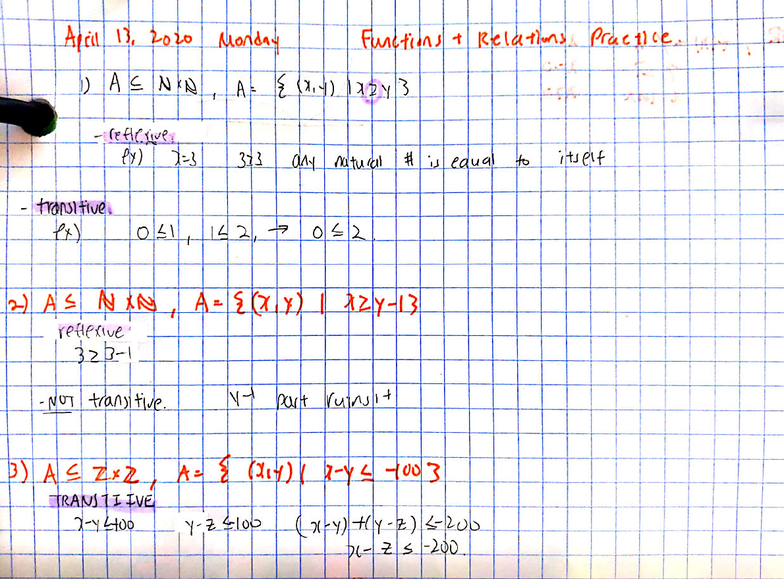 April 13, 2020 Monday Functions + Relations Practice.
1) A ⊆ ℕ×ℕ, A = { (x,y) | x≥y }
- reflexive.
ex) x=3 3≥3 any natural # is equal to itself
- transitive.
ex) 0≤1, 1≤2, → 0≤2.
2) A ⊆ ℕ×ℕ, A = { (x,y) | x≥y-1 }
reflexive
3≥3-1
- NOT transitive. y-1 part ruins it
3) A ⊆ ℤ×ℤ, A = { (x,y) | x-y ≤ -100 }
TRANSITIIVE
x-y≤-100 y-z≤-100 (x-y)+(y-z) ≤-200
x-z ≤ -200.